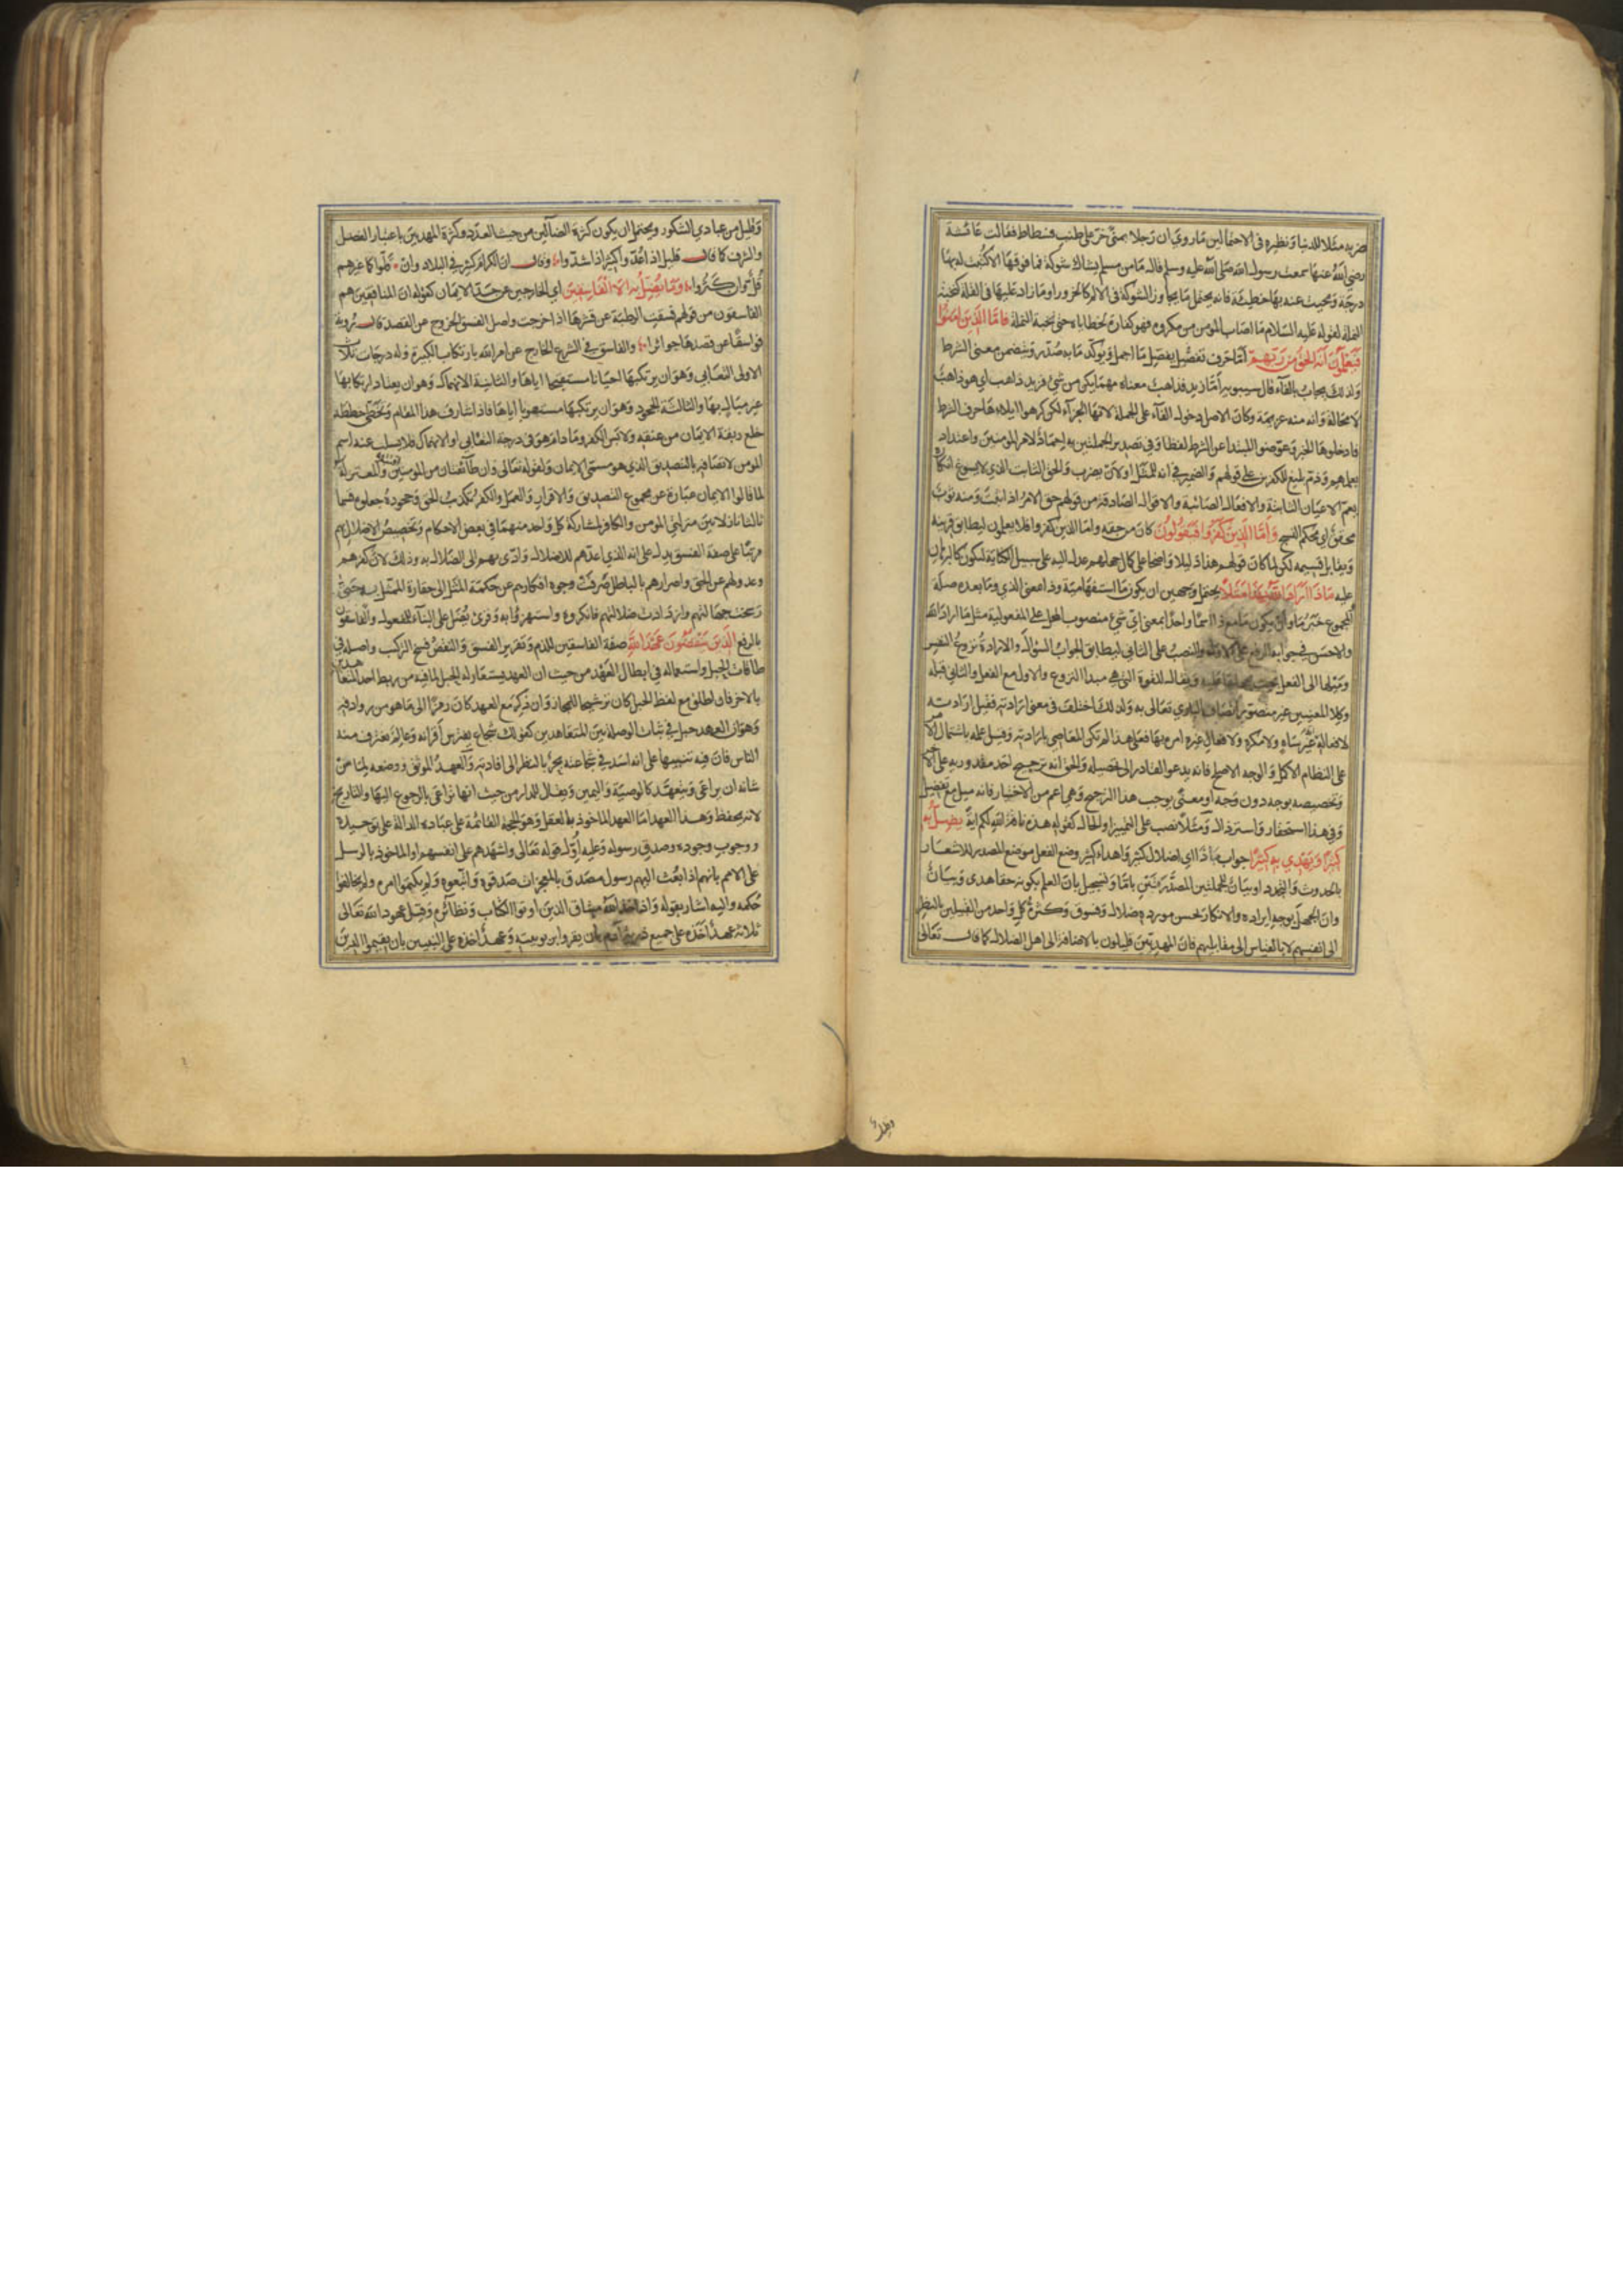 ضربه مثلا للدنيا ونظيره في الاحتمالين ما روي ان رجلا بمنى خر على طنب فسطاط فقالت عائشة
رضي الله عنها سمعت رسول الله صلى الله عليه وسلم قال ما من مسلم يشاك شوكة فما فوقها الا كتبت له بها
درجة ومحيت عنه بها خطيئة فانه يحتمل ما يجاوز الشوكة في الالم كالخرور او ما زاد عليها في القلة كنخبة
النملة لقوله عليه السلام ما اصاب المومن من مكروه فهو كفارة لخطاياه حتى نخبة النملة فاما الذين امنوا
فيعلمون انه الحق من ربهم اما حرف تفصيل يفصل ما اجمل ويوكد ما به صدر ويتضمن معنى الشرط
ولذلك يجاب بالفاء قال سيبويه اما زيد فذاهب معناه مهما يكن من شيء فزيد ذاهب اي هو ذاهب
لا محالة وانه منه عزيمة وكان الاصل دخول الفاء على الجملة لانها الجزاء لكن كرهوا ايلاءها حرف الشرط
فادخلوها الخبر وعوضوا المبتدا عن الشرط لفظا وفي تصدير الجملتين به احماد لامر المومنين واعتداد
بعلمهم وذم بليغ للكفرين على قولهم والضمير في انه للمثل او لان يضرب والحق الثابت الذي لا يسوغ انكاره
يعم الاعيان الثابتة والافعال الصائبة والاقوال الصادقة من قولهم حق الامر اذا ثبت ومنه ثوب
محقق اي محكم النسج واما الذين كفروا فيقولون كان من حقه واما الذين كفروا فلا يعلمون ليطابق قرينه
ويقابل قسيمه لكن لما كان قولهم هذا دليلا واضحا على كمال جهلهم عدل اليه على سبيل الكناية ليكون كالبرهان
عليه ماذا اراد الله بهذا مثلا يحتمل وجهين ان يكون ما استفهامية وذا بمعنى الذي وما بعده صلة
المجموع خبر ما وان يكون ما مع ذا اسما واحدا بمعنى اي شيء منصوب المحل على المفعولية مثل ما اراد الله
والاحسن في جوابه الرفع على الاول والنصب على الثاني ليطابق الجواب السؤال والارادة نزوع النفس
وميلها الى الفعل بحيث يحملها عليه ويقال للقوة التي هي مبدا النزوع والاول مع الفعل والثاني قبله
وكلا المعنيين غير متصور اتصاف الباري تعالى به ولذلك اختلف في معنى ارادته فقيل ارادته
لافعاله انه غير ساه ولا مكره ولافعال غيره امره بها فعلى هذا لم تكن المعاصي بارادته وقيل علمه باشتمال الامر
على النظام الاكمل والوجه الاصلح فانه يدعو القادر الى تحصيله والحق انه ترجيح احد مقدوريه على الاخر
وتخصيصه بوجه دون وجه او معنى يوجب هذا الترجيح وهي اعم من الاختيار فانه ميل مع تفضيل
وفي هذا استحقار واسترذال ومثلا نصب على التمييز او الحال كقوله هذه ناقة الله لكم اية يضل به
كثيرا ويهدي به كثيرا جواب ماذا اي اضلال كثير واهداء كثير وضع الفعل موضع المصدر للاشعار
بالحدوث والتجدد او بيان للجملتين المصدرتين باما وتسجيل بان العلم بكونه حقا هدى وبيان
وان الجهل بوجه ايراده والانكار لحسن مورده ضلال وفسوق وكثرة كل واحد من القبيلين بالنظر
الى انفسهم لا بالقياس الى مقابليهم فان المهديين قليلون بالاضافة الى اهل الضلال كما قال تعالى
وقليل
وقليل من عبادي الشكور ويحتمل ان يكون كثرة الضالين من حيث العدد وكثرة المهديين باعتبار الفضل
والشرف كما قال قليل اذا عدوا كثير اذا شدوا وقال ان الكرام كثير في البلاد وان قلوا كما غيرهم
قل وان كثروا وما يضل به الا الفاسقين اي الخارجين عن حد الايمان كقوله ان المنافقين هم
الفاسقون من قولهم فسقت الرطبة عن قشرها اذا خرجت واصل الفسق الخروج عن القصد قال روبة
فواسقا عن قصدها جوائرا والفاسق في الشرع الخارج عن امر الله بارتكاب الكبيرة وله درجات ثلاث
الاولى التغابي وهو ان يرتكبها احيانا مستقبحا اياها والثانية الانهماك وهو ان يعتاد ارتكابها
غير مبال بها والثالثة الجحود وهو ان يرتكبها مستصوبا اياها فاذا شارف هذا المقام وتخطى خططه
خلع ربقة الايمان من عنقه ولابس الكفر وما دام هو في درجة التغابي او الانهماك فلا يسلب عنه اسم
المومن لاتصافه بالتصديق الذي هو مسمى الايمان ولقوله تعالى وان طائفتان من المومنين اقتتلوا والمعتزلة
لما قالوا الايمان عبارة عن مجموع التصديق والاقرار والعمل والكفر تكذيب الحق وجحوده جعلوه قسما
ثالثا نازلا بين منزلتي المومن والكافر لمشاركة كل واحد منهما في بعض الاحكام وتخصيص الاضلال بهم
مرتبا على صفة الفسق يدل على انه الذي اعدهم للاضلال وادى بهم الى الضلال به وذلك لان كفرهم
وعدولهم عن الحق واصرارهم بالباطل صرفت وجوه افكارهم عن حكمة المثل الى حقارة الممثل به حتى
رسخت جهالتهم وازدادت ضلالتهم فانكروه واستهزؤا به وقرئ يضل على البناء للمفعول والفاسقون
بالرفع الذين ينقضون عهد الله صفة الفاسقين للذم وتقرير الفسق والنقض فسخ التركيب واصله في
طاقات الحبل واستعماله في ابطال العهد من حيث ان العهد يستعار له الحبل لما فيه من ربط احد المتعاهدين
بالاخر فان اطلق مع لفظ الحبل كان ترشيحا للمجاز وان ذكر مع العهد كان رمزا الى ما هو من روادفه
وهو ان العهد حبل في ثبات الوصلة بين المتعاهدين كقولك شجاع يفترس اقرانه وعالم يغترف منه
الناس فان فيه تنبيها على انه اسد في شجاعته بحر بالنظر الى افادته والعهد الموثق ووضعه لما من
شانه ان يراعى ويتعهد كالوصية واليمين ويقال للدار من حيث انها تراعى بالرجوع اليها والتاريخ
لانه يحفظ وهذا العهد اما العهد الماخوذ بالعقل وهو الحجة القائمة على عباده الدالة على توحيده
ووجوب وجوده وصدق رسوله وعليه اول قوله تعالى واشهدهم على انفسهم او الماخوذ بالرسل
على الامم بانهم اذا بعث اليهم رسول مصدق بالمعجزات صدقوه واتبعوه ولم يكتموا امره ولم يخالفوا
حكمه واليه اشار بقوله واذ اخذ الله ميثاق الذين اوتوا الكتاب ونظائره وقيل عهود الله تعالى
ثلاثة عهد اخذه على جميع ذرية ادم بان يقروا بربوبيته وعهد اخذه على النبيين بان يقيموا الدين